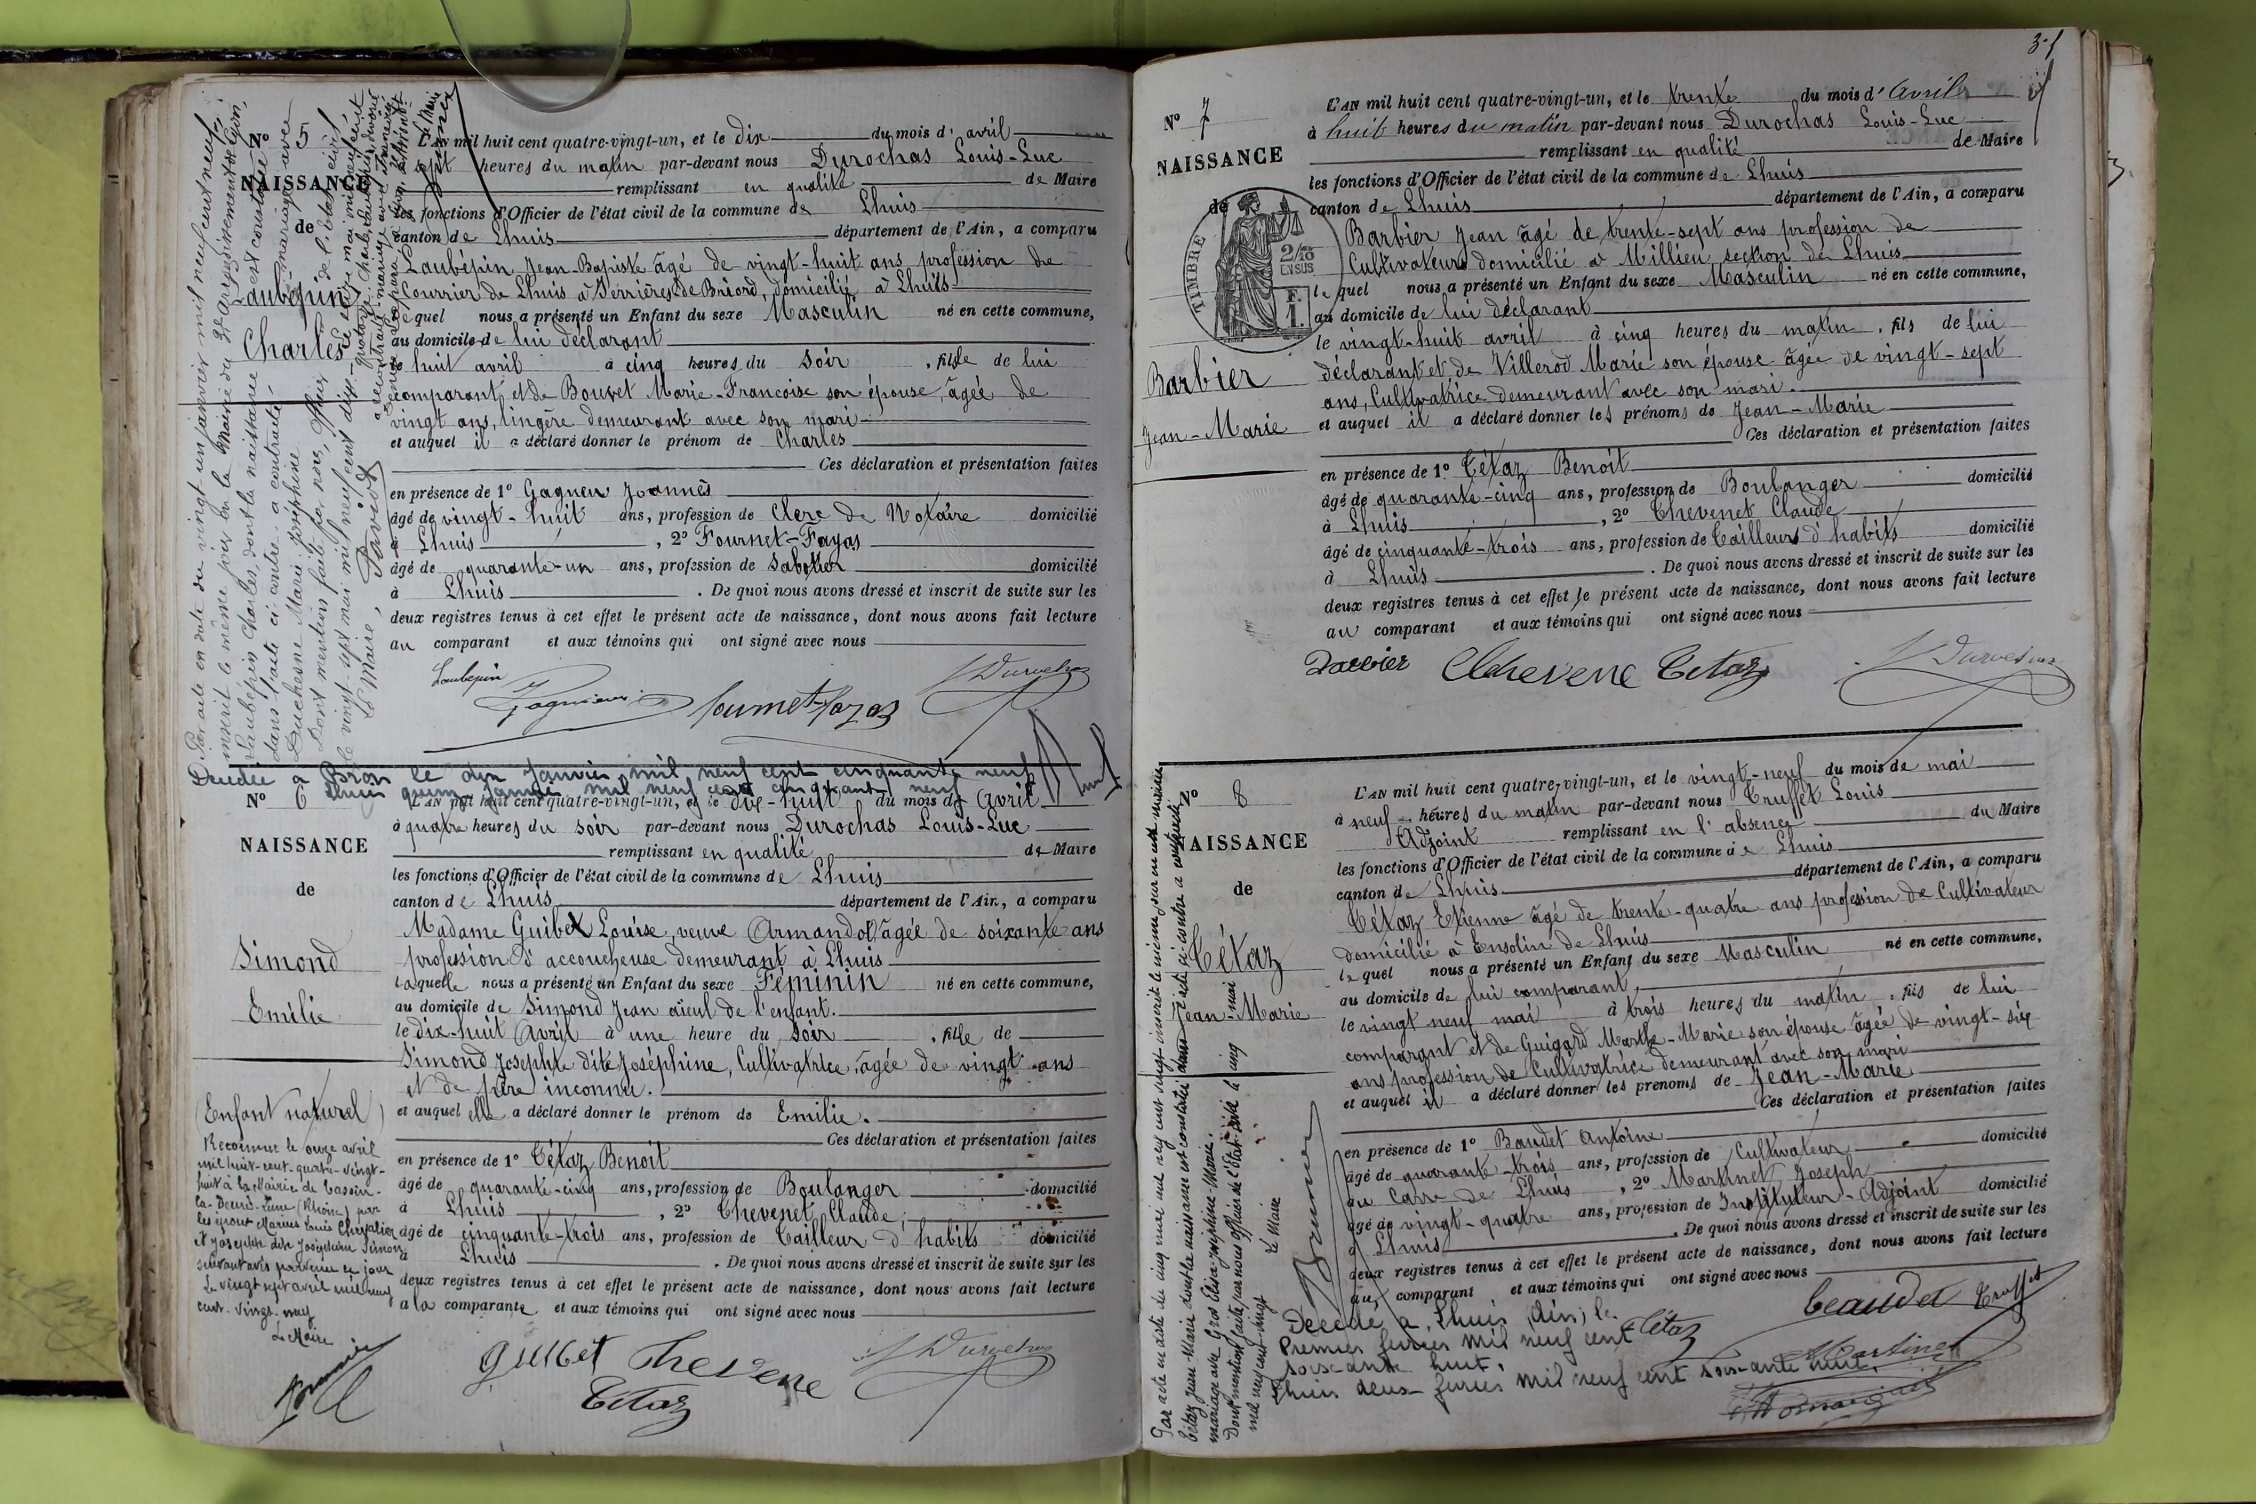 Nº 5
NAISSANCE
de
Laubépin
Charles
L'AN mil huit cent quatre-vingt-un, et le dix du mois d' avril
à sept heures du matin par-devant nous Durochas Louis-Luc
remplissant en qualité de Maire
les fonctions d'Officier de l'état civil de la commune de Lhuis
canton de Lhuis département de l'Ain, a comparu
Laubépin Jean-Baptiste âgé de vingt-huit ans profession de
Courrier de Lhuis à Serrières de Briord, domicilié à Lhuis
lequel nous a présenté un Enfant du sexe Masculin né en cette commune,
au domicile de lui déclarant
le huit avril à cinq heures du soir , fils de lui
comparant et de Bouvet Marie-Francoise son épouse, âgée de
vingt ans, lingère demeurant avec son mari
et auquel il a déclaré donner le prénom de Charles
Ces déclaration et présentation faites
en présence de 1º Gagneu Joannès
âgé de vingt-huit ans, profession de Clerc de Notaire domicilié
à Lhuis , 2º Fournet-Fayas
âgé de quarante-un ans, profession de Sabotier domicilié
à Lhuis . De quoi nous avons dressé et inscrit de suite sur les
deux registres tenus à cet effet le présent acte de naissance, dont nous avons fait lecture
au comparant et aux témoins qui ont signé avec nous
Laubepin
Fournet-Fayas
Durochas
Par acte en date du vingt-un janvier mil neuf cent neuf,
inscrit le même jour en la Mairie du 2e arrondissement de Lyon,
Laubépin Charles, dont la naissance est constatée
dans l'acte ci-contre, a contracté mariage avec
Duchesne Marie Joséphine
Dont mention faite par nous, Officier de l'état civil
le vingt-sept mai mil neuf cent dix-
Le Maire,
Décédé à Bron le dix Janvier mil neuf cent cinquante neuf
Lhuis quinze Janvier mil neuf cent cinquante neuf
Nº 6
NAISSANCE
de
Simond
Emilie
(Enfant naturel)
Reconnue le onze avril
mil huit-cent-quatre-vingt-
huit à la Mairie de Tassin-
la-Demi-Lune (Rhône) par
les époux Marius Louis Chevalier
et Josephte dite Joséphine Simond
suivant avis parvenu ce jour
Le vingt sept avril mil neuf
cent-vingt-neuf
Le Maire
L'AN mil huit cent quatre-vingt-un, et le dix-huit du mois d' Avril
à quatre heures du soir par-devant nous Durochas Louis-Luc
remplissant en qualité de Maire
les fonctions d'Officier de l'état civil de la commune de Lhuis
canton de Lhuis département de l'Ain, a comparu
Madame Guibet Louise, veuve Armandot, âgée de soixante ans
profession d'accoucheuse demeurant à Lhuis
laquelle nous a présenté un Enfant du sexe Féminin né en cette commune,
au domicile de Simond Jean aïeul de l'enfant.
le dix-huit Avril à une heure du soir , fille de
Simond Josephte dite Joséphine, Cultivatrice, âgée de vingt ans
et de père inconnu.
et auquel elle a déclaré donner le prénom de Emilie.
Ces déclaration et présentation faites
en présence de 1º Cétaz Benoit
âgé de quarante-cinq ans, profession de Boulanger domicilié
à Lhuis , 2º Chevenet Claude,
âgé de cinquante-trois ans, profession de Tailleur d'habits domicilié
à Lhuis . De quoi nous avons dressé et inscrit de suite sur les
deux registres tenus à cet effet le présent acte de naissance, dont nous avons fait lecture
a la comparante et aux témoins qui ont signé avec nous
guibet Chevene
Cétaz
Durochas
Nº 7
NAISSANCE
de
TIMBRE
2/10
EN SUS
F.
1.
Barbier
Jean-Marie
L'AN mil huit cent quatre-vingt-un, et le trente du mois d' Avril
à huit heures du matin par-devant nous Durochas Louis-Luc
remplissant en qualité de Maire
les fonctions d'Officier de l'état civil de la commune de Lhuis
canton de Lhuis département de l'Ain, a comparu
Barbier Jean âgé de trente-sept ans profession de
Cultivateur domicilié à Millieu section de Lhuis
lequel nous a présenté un Enfant du sexe Masculin né en cette commune,
au domicile de lui déclarant
le vingt-huit avril à cinq heures du matin , fils de lui
déclarant et de Villerod Marie son épouse âgée de vingt-sept
ans, Cultivatrice demeurant avec son mari.
et auquel il a déclaré donner les prénoms de Jean-Marie
Ces déclaration et présentation faites
en présence de 1º Cétaz Benoit
âgé de quarante-cinq ans, profession de Boulanger domicilié
à Lhuis , 2º Chevenet Claude
âgé de cinquante-trois ans, profession de Tailleur d'habits domicilié
à Lhuis . De quoi nous avons dressé et inscrit de suite sur les
deux registres tenus à cet effet le présent acte de naissance, dont nous avons fait lecture
au comparant et aux témoins qui ont signé avec nous
Barbier Chevene Cétaz
Durochas
Nº 8
NAISSANCE
de
Cétaz
Jean-Marie
L'AN mil huit cent quatre-vingt-un, et le vingt-neuf du mois de mai
à neuf heures du matin par-devant nous Truffet Louis
Adjoint remplissant en l'absence du Maire
les fonctions d'Officier de l'état civil de la commune de Lhuis
canton de Lhuis département de l'Ain, a comparu
Cétaz Etienne âgé de trente-quatre ans profession de Cultivateur
domicilié à Ensolin de Lhuis
lequel nous a présenté un Enfant du sexe Masculin né en cette commune,
au domicile de lui comparant,
le vingt neuf mai à trois heures du matin , fils de lui
comparant et de Guigard Marthe-Marie son épouse âgée de vingt-six
ans profession de Cultivatrice demeurant avec son mari
et auquel il a déclaré donner les prenoms de Jean-Marie
Ces déclaration et présentation faites
en présence de 1º Baudet Antoine
âgé de quarante-trois ans, profession de Cultivateur domicilié
au Carre de Lhuis , 2º Martinet Joseph
âgé de vingt-quatre ans, profession de Instituteur-Adjoint domicilié
à Lhuis . De quoi nous avons dressé et inscrit de suite sur les
deux registres tenus à cet effet le présent acte de naissance, dont nous avons fait lecture
au comparant et aux témoins qui ont signé avec nous
Cétaz
Beaudet Truffet
Martinet
Décédé à Lhuis (Ain) le
Premier février mil neuf cent
soixante huit.
Lhuis deux février mil neuf cent soixante huit.
Par acte en date du cinq mai mil neuf cent vingt inscrit le même jour en cette mairie
Cétaz Jean-Marie dont la naissance est constatée dans l'acte ci-contre a contracté
mariage avec Gros Elisa-Joséphine-Marie.
Dont mention faite par nous officier de l'Etat-civil le cinq mai
mil neuf cent vingt
Le Maire